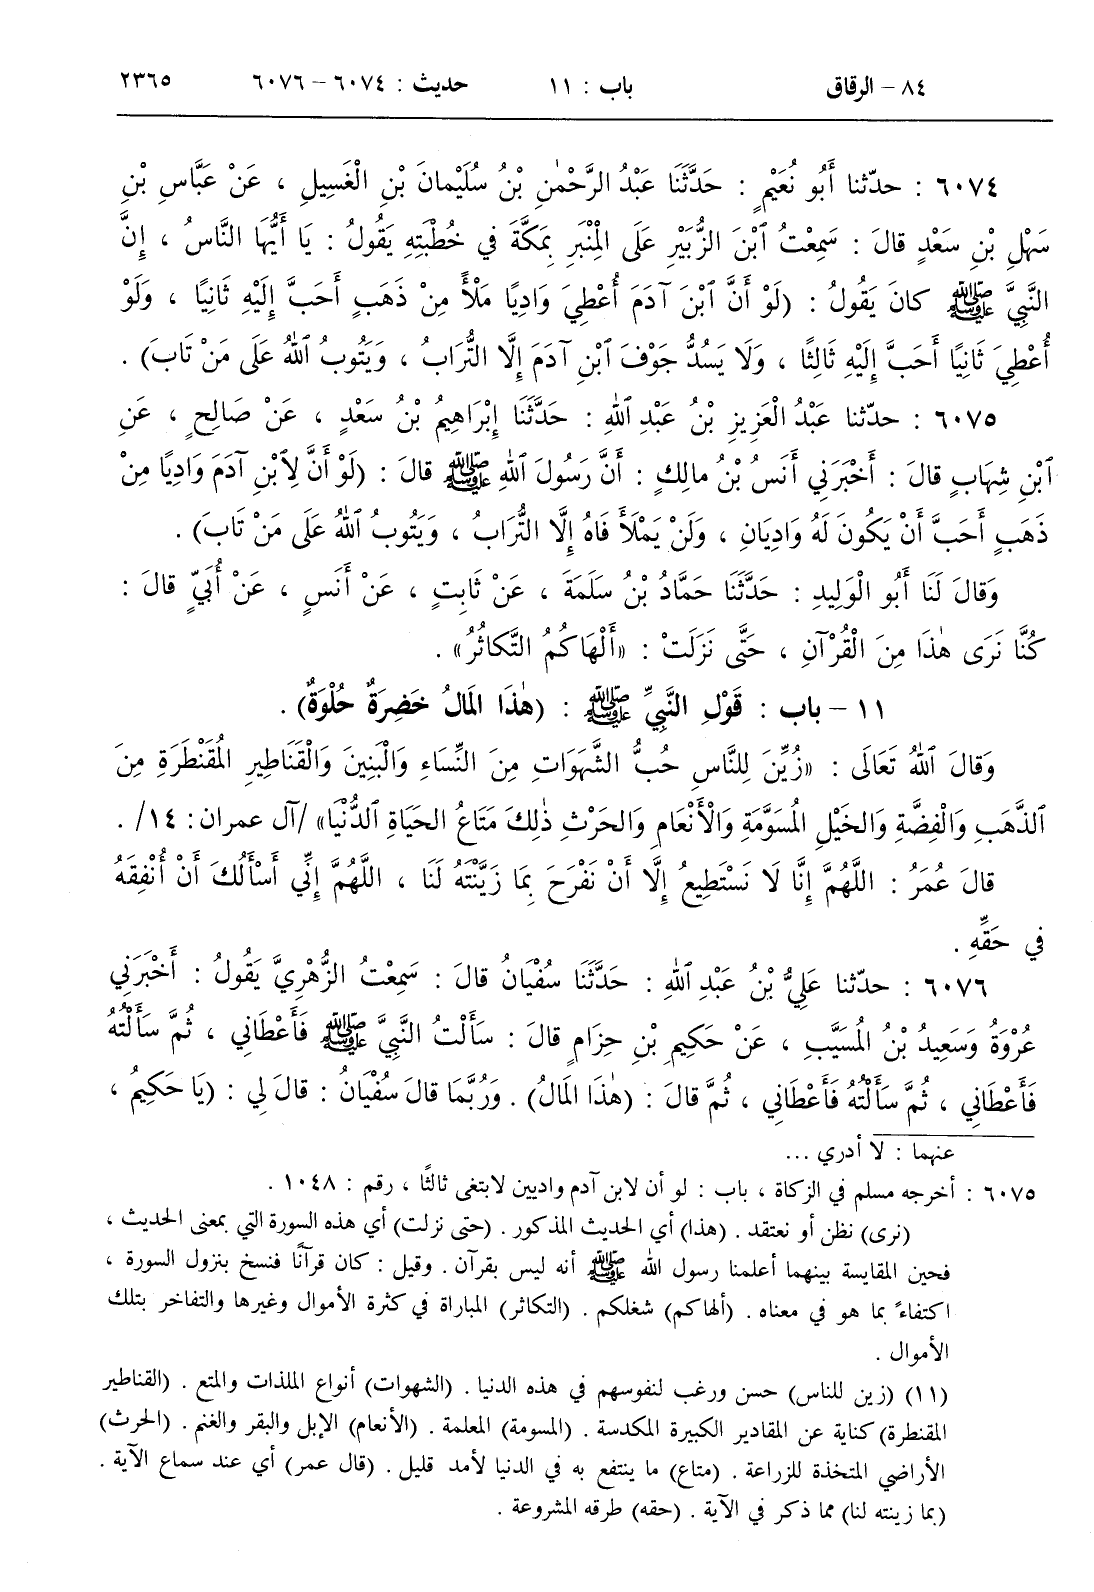 ٨٤ – الرقاق باب : ١١ حديث : ٦٠٧٤ – ٦٠٧٦ ٢٣٦٥
٦٠٧٤ : حدّثنا أَبُو نُعَيْمٍ : حَدَّثَنَا عَبْدُ الرَّحْمٰنِ بْنُ سُلَيْمانَ بْنِ الْغَسِيلِ ، عَنْ عَبَّاسِ بْنِ
سَهْلِ بْنِ سَعْدٍ قالَ : سَمِعْتُ ٱبْنَ الزُّبَيْرِ عَلَى الْمِنْبَرِ بِمَكَّةَ في خُطْبَتِهِ يَقُولُ : يَا أَيُّهَا النَّاسُ ، إِنَّ
النَّبِيَّ ﷺ كانَ يَقُولُ : (لَوْ أَنَّ ٱبْنَ آدَمَ أُعْطِيَ وَادِيًا مَلْأً مِنْ ذَهَبٍ أَحَبَّ إِلَيْهِ ثانِيًا ، وَلَوْ
أُعْطِيَ ثَانِيًا أَحَبَّ إِلَيْهِ ثَالِثًا ، وَلَا يَسُدُّ جَوْفَ ٱبْنِ آدَمَ إِلَّا التُّرَابُ ، وَيَتُوبُ ٱللهُ عَلَى مَنْ تَابَ) .
٦٠٧٥ : حدّثنا عَبْدُ الْعَزِيزِ بْنُ عَبْدِ ٱللهِ : حَدَّثَنَا إِبْرَاهِيمُ بْنُ سَعْدٍ ، عَنْ صَالِحٍ ، عَنِ
ٱبْنِ شِهَابٍ قالَ : أَخْبَرَنِي أَنَسُ بْنُ مالِكٍ : أَنَّ رَسُولَ ٱللهِ ﷺ قالَ : (لَوْ أَنَّ لِٱبْنِ آدَمَ وَادِيًا مِنْ
ذَهَبٍ أَحَبَّ أَنْ يَكُونَ لَهُ وَادِيَانِ ، وَلَنْ يَمْلَأَ فَاهُ إِلَّا التُّرَابُ ، وَيَتُوبُ ٱللهُ عَلَى مَنْ تَابَ) .
وَقالَ لَنَا أَبُو الْوَلِيدِ : حَدَّثَنَا حَمَّادُ بْنُ سَلَمَةَ ، عَنْ ثَابِتٍ ، عَنْ أَنَسٍ ، عَنْ أُبَيٍّ قالَ :
كُنَّا نَرَى هٰذَا مِنَ الْقُرْآنِ ، حَتَّى نَزَلَتْ : «أَلْهَاكُمُ التَّكاثُرُ» .
١١ – باب : قَوْلِ النَّبِيِّ ﷺ : (هٰذَا المَالُ خَضِرَةٌ حُلْوَةٌ) .
وَقالَ ٱللهُ تَعَالَى : «زُيِّنَ لِلنَّاسِ حُبُّ الشَّهَوَاتِ مِنَ النِّسَاءِ وَالْبَنِينَ وَالْقَنَاطِيرِ المُقَنْطَرَةِ مِنَ
ٱلذَّهَبِ وَالْفِضَّةِ وَالخَيْلِ المُسَوَّمَةِ وَالْأَنْعَامِ وَالحَرْثِ ذٰلِكَ مَتَاعُ الحَيَاةِ ٱلدُّنْيَا» /آل عمران: ١٤/ .
قالَ عُمَرُ : اللَّهُمَّ إِنَّا لَا نَسْتَطِيعُ إِلَّا أَنْ نَفْرَحَ بِمَا زَيَّنْتَهُ لَنَا ، اللَّهُمَّ إِنِّي أَسْأَلُكَ أَنْ أُنْفِقَهُ
في حَقِّهِ .
٦٠٧٦ : حدّثنا عَلِيُّ بْنُ عَبْدِ ٱللهِ : حَدَّثَنَا سُفْيَانُ قالَ : سَمِعْتُ الزُّهْرِيَّ يَقُولُ : أَخْبَرَنِي
عُرْوَةُ وَسَعِيدُ بْنُ المُسَيَّبِ ، عَنْ حَكِيمِ بْنِ حِزَامٍ قالَ : سَأَلْتُ النَّبِيَّ ﷺ فَأَعْطَانِي ، ثُمَّ سَأَلْتُهُ
فَأَعْطَانِي ، ثُمَّ سَأَلْتُهُ فَأَعْطَانِي ، ثُمَّ قالَ : (هٰذَا المَالُ) . وَرُبَّمَا قالَ سُفْيَانُ : قالَ لِي : (يَا حَكِيمُ ،
عنهما : لا أدري ...
٦٠٧٥ : أخرجه مسلم في الزكاة ، باب : لو أن لابن آدم واديين لابتغى ثالثًا ، رقم : ١٠٤٨ .
(نرى) نظن أو نعتقد . (هذا) أي الحديث المذكور . (حتى نزلت) أي هذه السورة التي بمعنى الحديث ،
فحين المقايسة بينهما أعلمنا رسول الله ﷺ أنه ليس بقرآن . وقيل : كان قرآنًا فنسخ بنزول السورة ،
اكتفاءً بما هو في معناه . (ألهاكم) شغلكم . (التكاثر) المباراة في كثرة الأموال وغيرها والتفاخر بتلك
الأموال .
(١١) (زين للناس) حسن ورغب لنفوسهم في هذه الدنيا . (الشهوات) أنواع الملذات والمتع . (القناطير
المقنطرة) كناية عن المقادير الكبيرة المكدسة . (المسومة) المعلمة . (الأنعام) الإبل والبقر والغنم . (الحرث)
الأراضي المتخذة للزراعة . (متاع) ما ينتفع به في الدنيا لأمد قليل . (قال عمر) أي عند سماع الآية .
(بما زينته لنا) مما ذكر في الآية . (حقه) طرقه المشروعة .